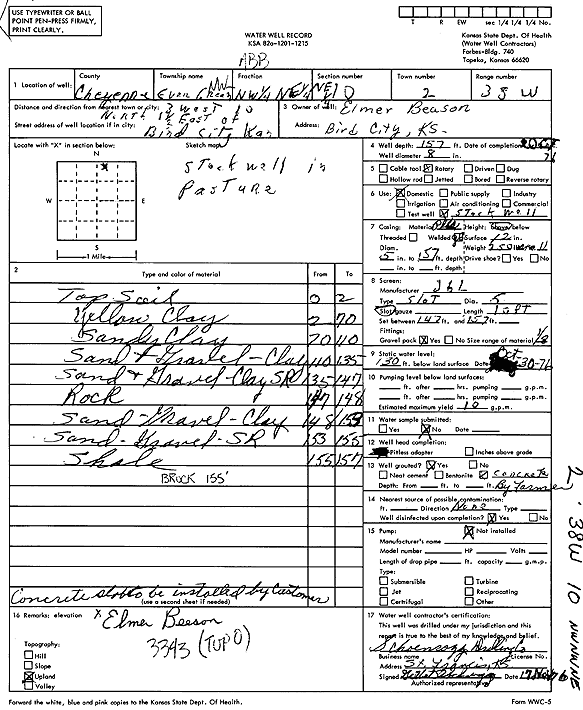 USE TYPEWRITER OR BALL
POINT PEN-PRESS FIRMLY,
PRINT CLEARLY.
T R EW sec 1/4 1/4 1/4 No.
WATER WELL RECORD
KSA 82a-1201-1215
Kansas State Dept. Of Health
(Water Well Contractors)
Forbes-Bldg. 740
Topeka, Kansas 66620
ABB
1 Location of well:
County
Cheyenne
Township name
Fraction
NW NW¼ NE¼ NE¼
Section number
10
Town number
2
Range number
38 W
Distance and direction from nearest town or city: 3 West 10
North 1½ East of
Street address of well location if in city: Bird City Kan
3 Owner of well: Elmer Beeson
Address: Bird City, KS.
Locate with "X" in section below:
N
X
W E
S
1 Mile
Sketch map:
Stock well in
Pasture
4 Well depth: 157 ft. Date of completion
Well diameter 8 in. 76
5 Cable tool X Rotary Driven Dug
Hollow rod Jetted Bored Reverse rotary
6 Use: X Domestic Public supply Industry
Irrigation Air conditioning Commercial
Test well X Stock Well
7 Casing: Material Height: above/below
Threaded Welded Surface 12 in.
Diam. Weight
5 in. to 157 ft. depth Drive shoe? Yes No
in. to ft. depth
8 Screen:
Manufacturer JBL
Type Slot Dia. 5
Slot/gauze Length 10 ft
Set between 147 ft. and 157 ft.
Fittings:
Gravel pack X Yes No Size range of material 1/8
9 Static water level: Oct
130 ft. below land surface Date 30-76
10 Pumping level below land surfaces:
ft. after hrs. pumping g.p.m.
ft. after hrs. pumping g.p.m.
Estimated maximum yield 10 g.p.m.
11 Water sample submitted:
Yes X No Date
12 Well head completion:
Pitless adapter Inches above grade
13 Well grouted? X Yes No
Neat cement Bentonite X Concrete
Depth: From ft. to ft. By Farmer
14 Nearest source of possible contamination:
ft. Direction None Type
Well disinfected upon completion? X Yes No
15 Pump: X Not installed
Manufacturer's name
Model number HP Volts
Length of drop pipe ft. capacity g.m.p.
Type:
Submersible Turbine
Jet Reciprocating
Certrifugal Other
2 Type and color of material From To
Top Soil 0 2
Yellow Clay 2 70
Sandy Clay 70 110
Sand & Gravel-Clay 110 135
Sand & Gravel-Clay SR 135 147
Rock 147 148
Sand-Gravel-Clay 148 153
Sand-Gravel-SR 153 155
Shale 155 157
BROCK 155'
Concrete slab to be installed by Customer
(use a second sheet if needed)
16 Remarks: elevation X Elmer Beeson
3343 (TOPO)
Topography:
Hill
Slope
X Upland
Valley
17 Water well contractor's certification:
This well was drilled under my jurisdiction and this
report is true to the best of my knowledge and belief.
Business name License No.
Address St. Francis KS
Signed Date 17 Nov 76
Authorized representative
2 38W 10 NWNWNE
Forward the white, blue and pink copies to the Kansas State Dept. Of Health.
Form WWC-5